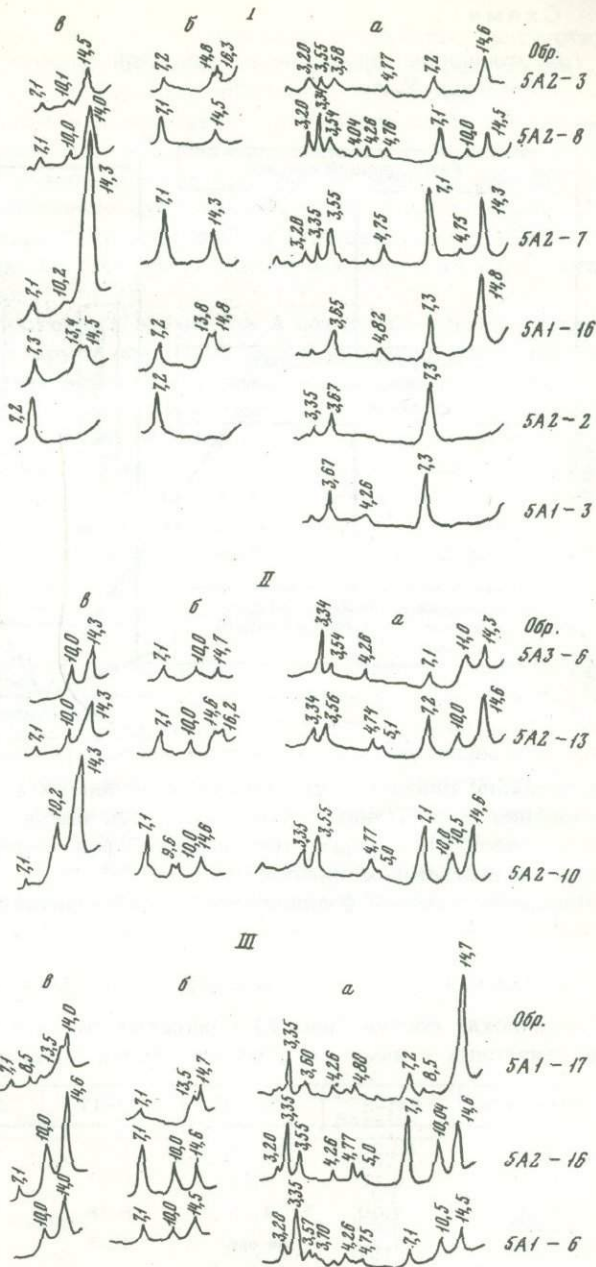 I
в б а Обр.
7,1 10,1 14,5 7,2 14,8 16,3 3,20 3,55 3,58 4,77 7,2 14,6 5А2-3
7,1 10,0 14,0 7,1 14,5 3,20 3,54 4,04 4,26 4,76 7,1 10,0 14,5 5А2-8
7,1 10,2 14,3 7,1 14,3 3,28 3,35 3,55 4,75 7,1 4,75 14,3 5А2-7
7,3 13,4 14,5 7,2 13,8 14,8 3,65 4,82 7,3 14,8 5А1-16
7,2 7,2 3,35 3,67 7,3 5А2-2
3,67 4,26 7,3 5А1-3
II
в б а Обр.
10,0 14,3 7,1 10,0 14,7 3,34 3,54 4,26 7,1 11,0 14,3 5А3-6
7,1 10,0 14,3 7,1 10,0 14,6 16,2 3,34 3,56 4,74 5,1 7,2 10,0 14,6 5А2-13
7,1 10,2 14,3 7,1 9,6 10,0 14,6 3,35 3,55 4,77 5,0 7,1 10,0 10,5 14,6 5А2-10
III
в б а Обр.
7,1 8,5 13,5 14,0 7,1 13,5 14,7 3,35 3,60 4,26 4,80 7,2 8,5 14,7 5А1-17
7,1 10,0 14,6 7,1 10,0 14,6 3,20 3,35 3,55 4,26 4,77 5,0 7,1 10,04 14,6 5А2-16
10,0 14,0 7,1 10,0 14,5 3,20 3,35 3,57 3,70 4,26 4,75 7,1 10,5 14,5 5А1-6